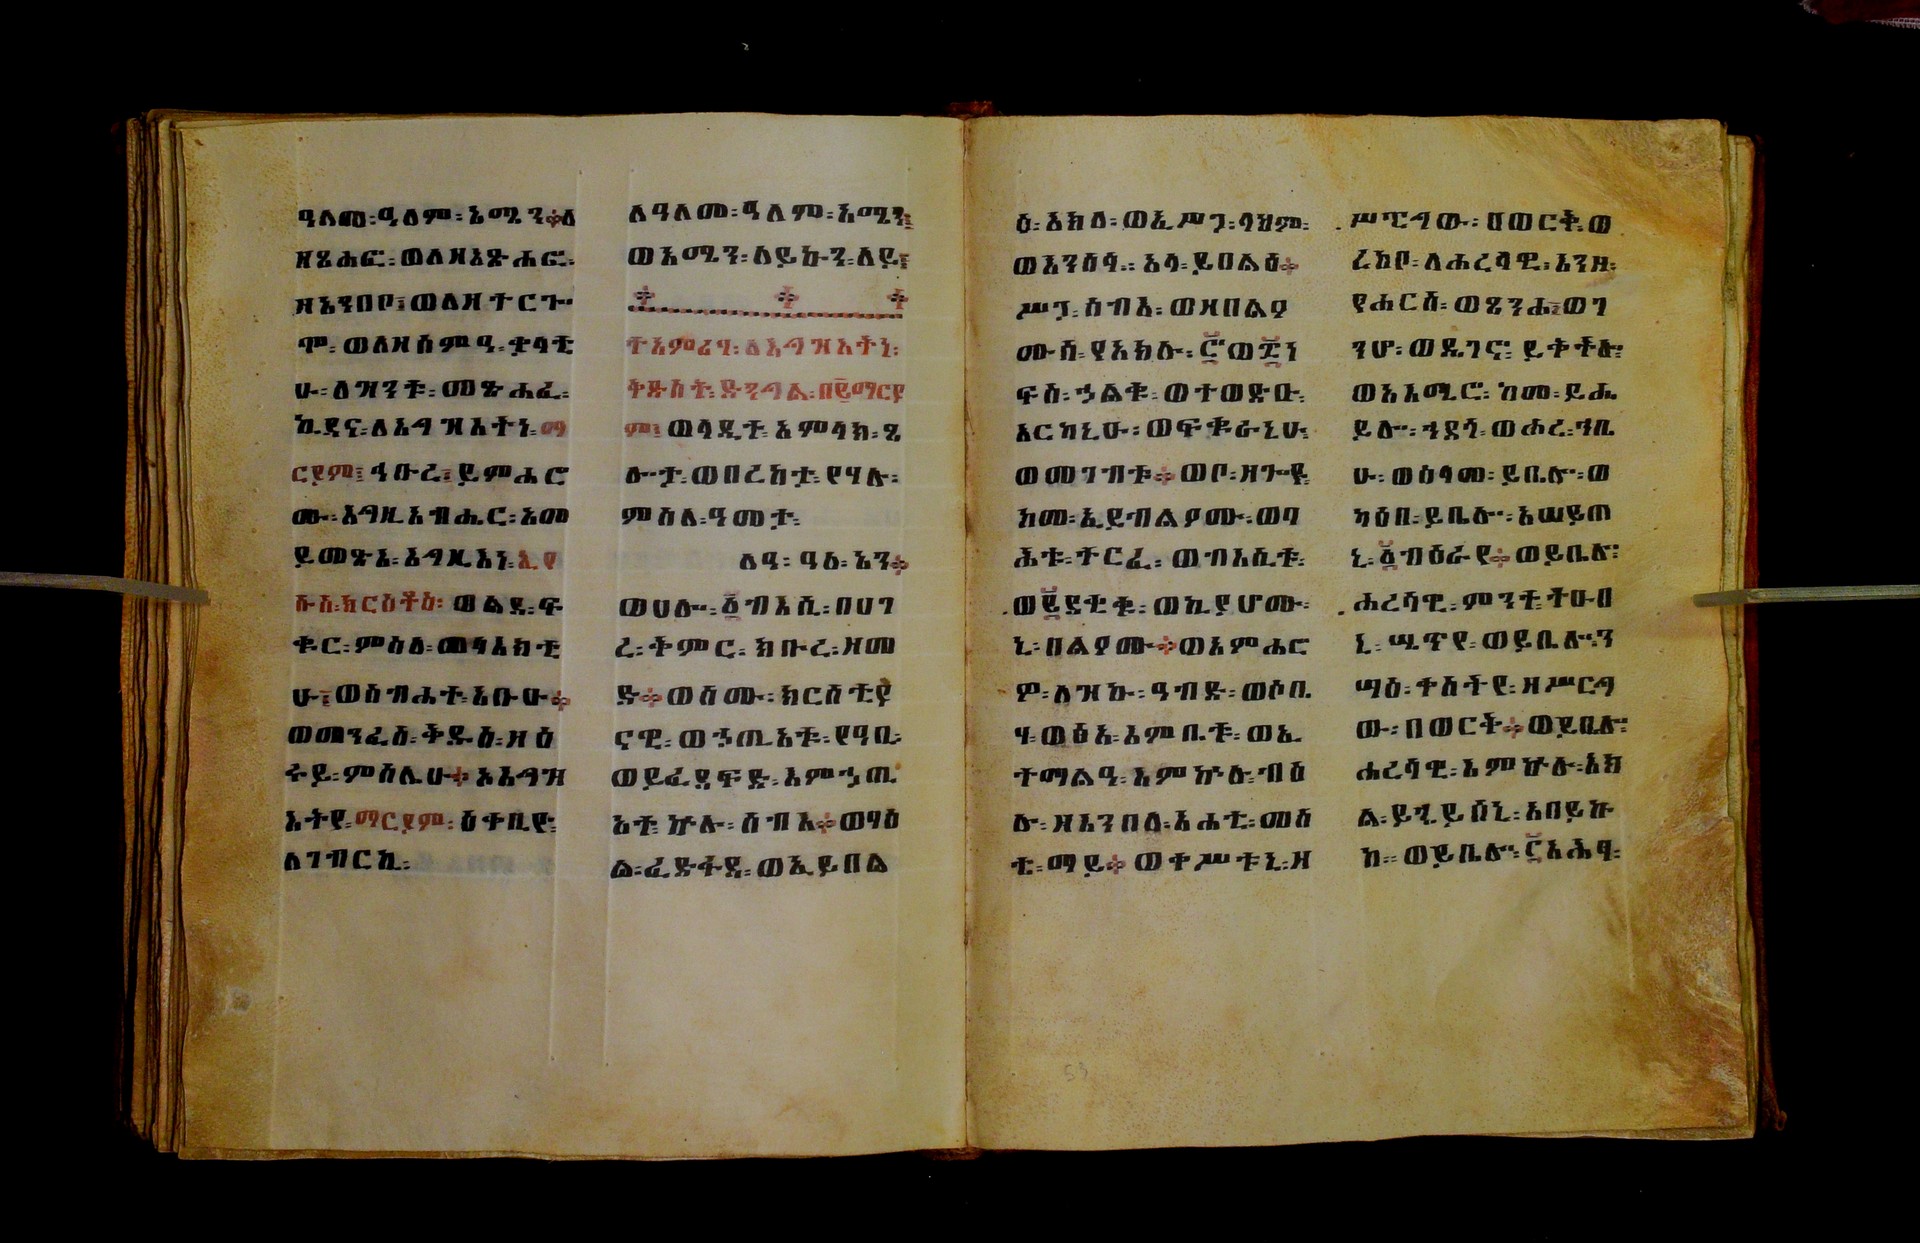 ዓለመ፡ ዓለም፡ አሜን፨ ለ
ዘጸሐፎ፡ ወለዘአጽሐፎ፡
ዘአንበቦ፤ ወለዘተርጐ
ሞ፡ ወለዘሰምዓ፡ ቃላቲ
ሁ፡ ለዝንቱ፡ መጽሐፈ፡
ኪዳና፡ ለእግዝእትነ፡ ማ
ርያም፤ ኅቡረ፤ ይምሐሮ
ሙ፡ እግዚአብሔር፡ አመ
ይመጽእ፡ እግዚእነ፡ ኢየ
ሱስ፡ ክርስቶስ፡ ወልደ፡ ፍ
ቁር፡ ምስለ፡ መላእክቲ
ሁ፤ ወስብሐተ፡ አቡሁ፨
ወመንፈስ፡ ቅዱስ፡ ዘዕ
ሩይ፡ ምስሌሁ፨ ኦእግዝ
እትየ፡ ማርያም፡ ዕቀቢዮ፡
ለገብርኪ፡
ለዓለመ፡ ዓለም፡ አሜን፤
ወአሜን፡ ለይኩን፡ ለይ፤
ተአምሪሃ፡ ለእግዝእትነ፡
ቅድስት፡ ድንግል፡ በ፪ማርያ
ም፤ ወላዲተ፡ አምላክ፡ ጸ
ሎታ፡ ወበረከታ፡ የሃሉ፡
ምስለ፡ ዓመታ፡
ለዓ፡ ዓለ፡ አን፨
ወሀሎ፡ ፩ብእሲ፡ በሀገ
ረ፡ ቅምር፡ ክቡረ፡ ዘመ
ድ፨ ወስሙ፡ ክርስቲያ
ናዊ፡ ወኃጢአቱ፡ የዓቢ፡
ወይፈደፍድ፡ እምኃጢ
አቱ፡ ኵሉ፡ ሰብእ፨ ወሃዕ
ል፡ ፈድፋደ፡ ወኢይበል
ዕ፡ እክለ፡ ወኢሥጋ፡ ላህም፡
ወእንስሳ፡ እላ፡ ይበልዕ፨
ሥጋ፡ ሰብእ፡ ወዘበልዖ
ሙሰ፡ የአክሉ፡ ፸ወ፰ነ
ፍሰ፡ ኃልቁ፡ ወተወድኡ፡
አርካኒሁ፡ ወፍቁራኒሁ፡
ወመገብቱ፨ ወቦ፡ ዘጐየ፡
ከመ፡ ኢይብልዖሙ፡ ወባ
ሕቱ፡ ተርፈ፡ ወብእሲቱ፡
ወ፪ደቂቁ፡ ወኪያሆሙ፡
ኒ፡ በልዖሙ፨ ወእምሐር
ም፡ ለዝኩ፡ ዓብድ፡ ወሶበ፡
ሃ፡ ወፅአ፡ እምቤቱ፡ ወኢ
ተማልዓ፡ እምኵሉ፡ ብዕ
ሉ፡ ዘእንበለ፡ አሐቲ፡ መስ
ቲ፡ ማይ፨ ወቀሥቱኒ፡ ዘ
ሥፒግው፡ በወርቅ፡ ወ
ረከቦ፡ ለሐረሳዊ፡ እንዘ፡
የሐርስ፡ ወጸንሐ፤ ወገ
ንሆ፡ ወዲገና፡ ይቀትሎ፡
ወአእሚሮ፡ ከመ፡ ይሔ
ይሎ፡ ኀደጎ፡ ወሐረ፡ ኀቤ
ሁ፡ ወሰላመ፡ ይቤሎ፡ ወ
ካዕበ፡ ይቤሎ፡ አሠይጠ
ኒ፡ ፩ብዕራየ፨ ወይቤሎ፡
ሐረሳዊ፡ ምንተ፡ ትሁበ
ኒ፡ ሤጥየ፡ ወይቤሎ፡ ን
ሣዕ፡ ቀስትየ፡ ዘሥርግ
ው፡ በወርቅ፨ ወይቤሎ፡
ሐረሳዊ፡ እምኵሉ፡ እክ
ል፡ ይኄይሰኒ፡ እበይኩ
ከ፡ ወይቤሎ፡ ፸አሕፃ፡
53